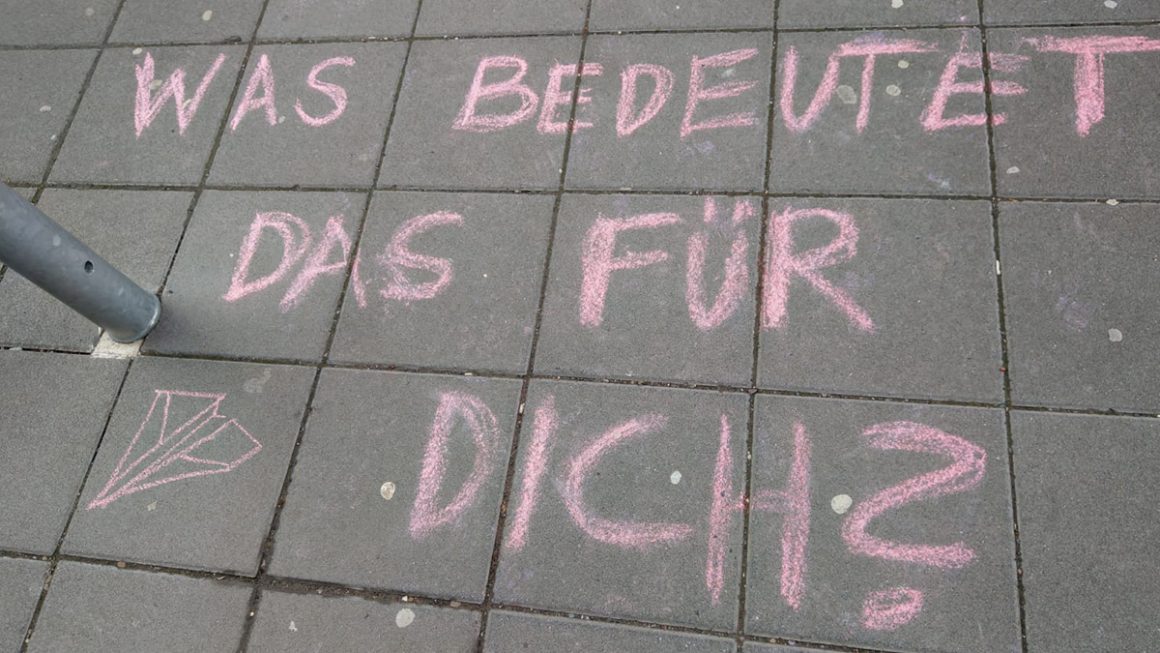 WAS BEDEUTET
DAS FÜR
DICH?